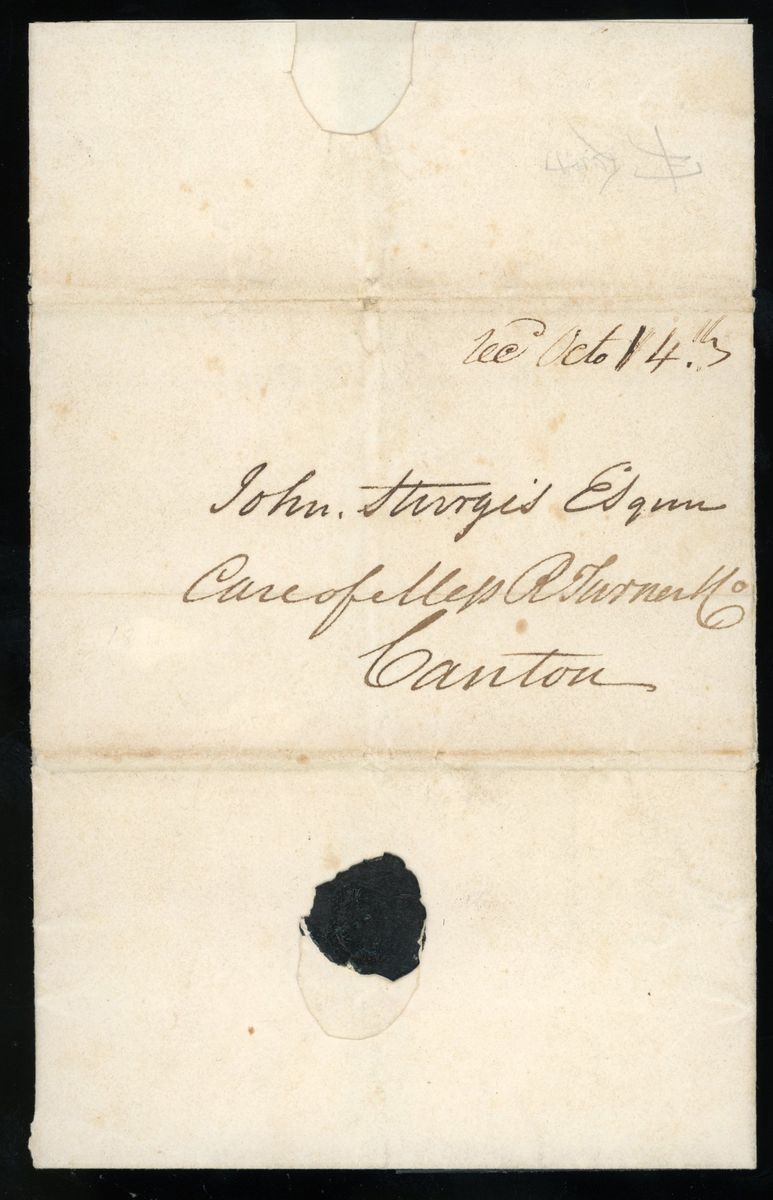 Recd Octo 14.th
John. Sturgis Esqur
Care of Mess R Turner & Co
Canton